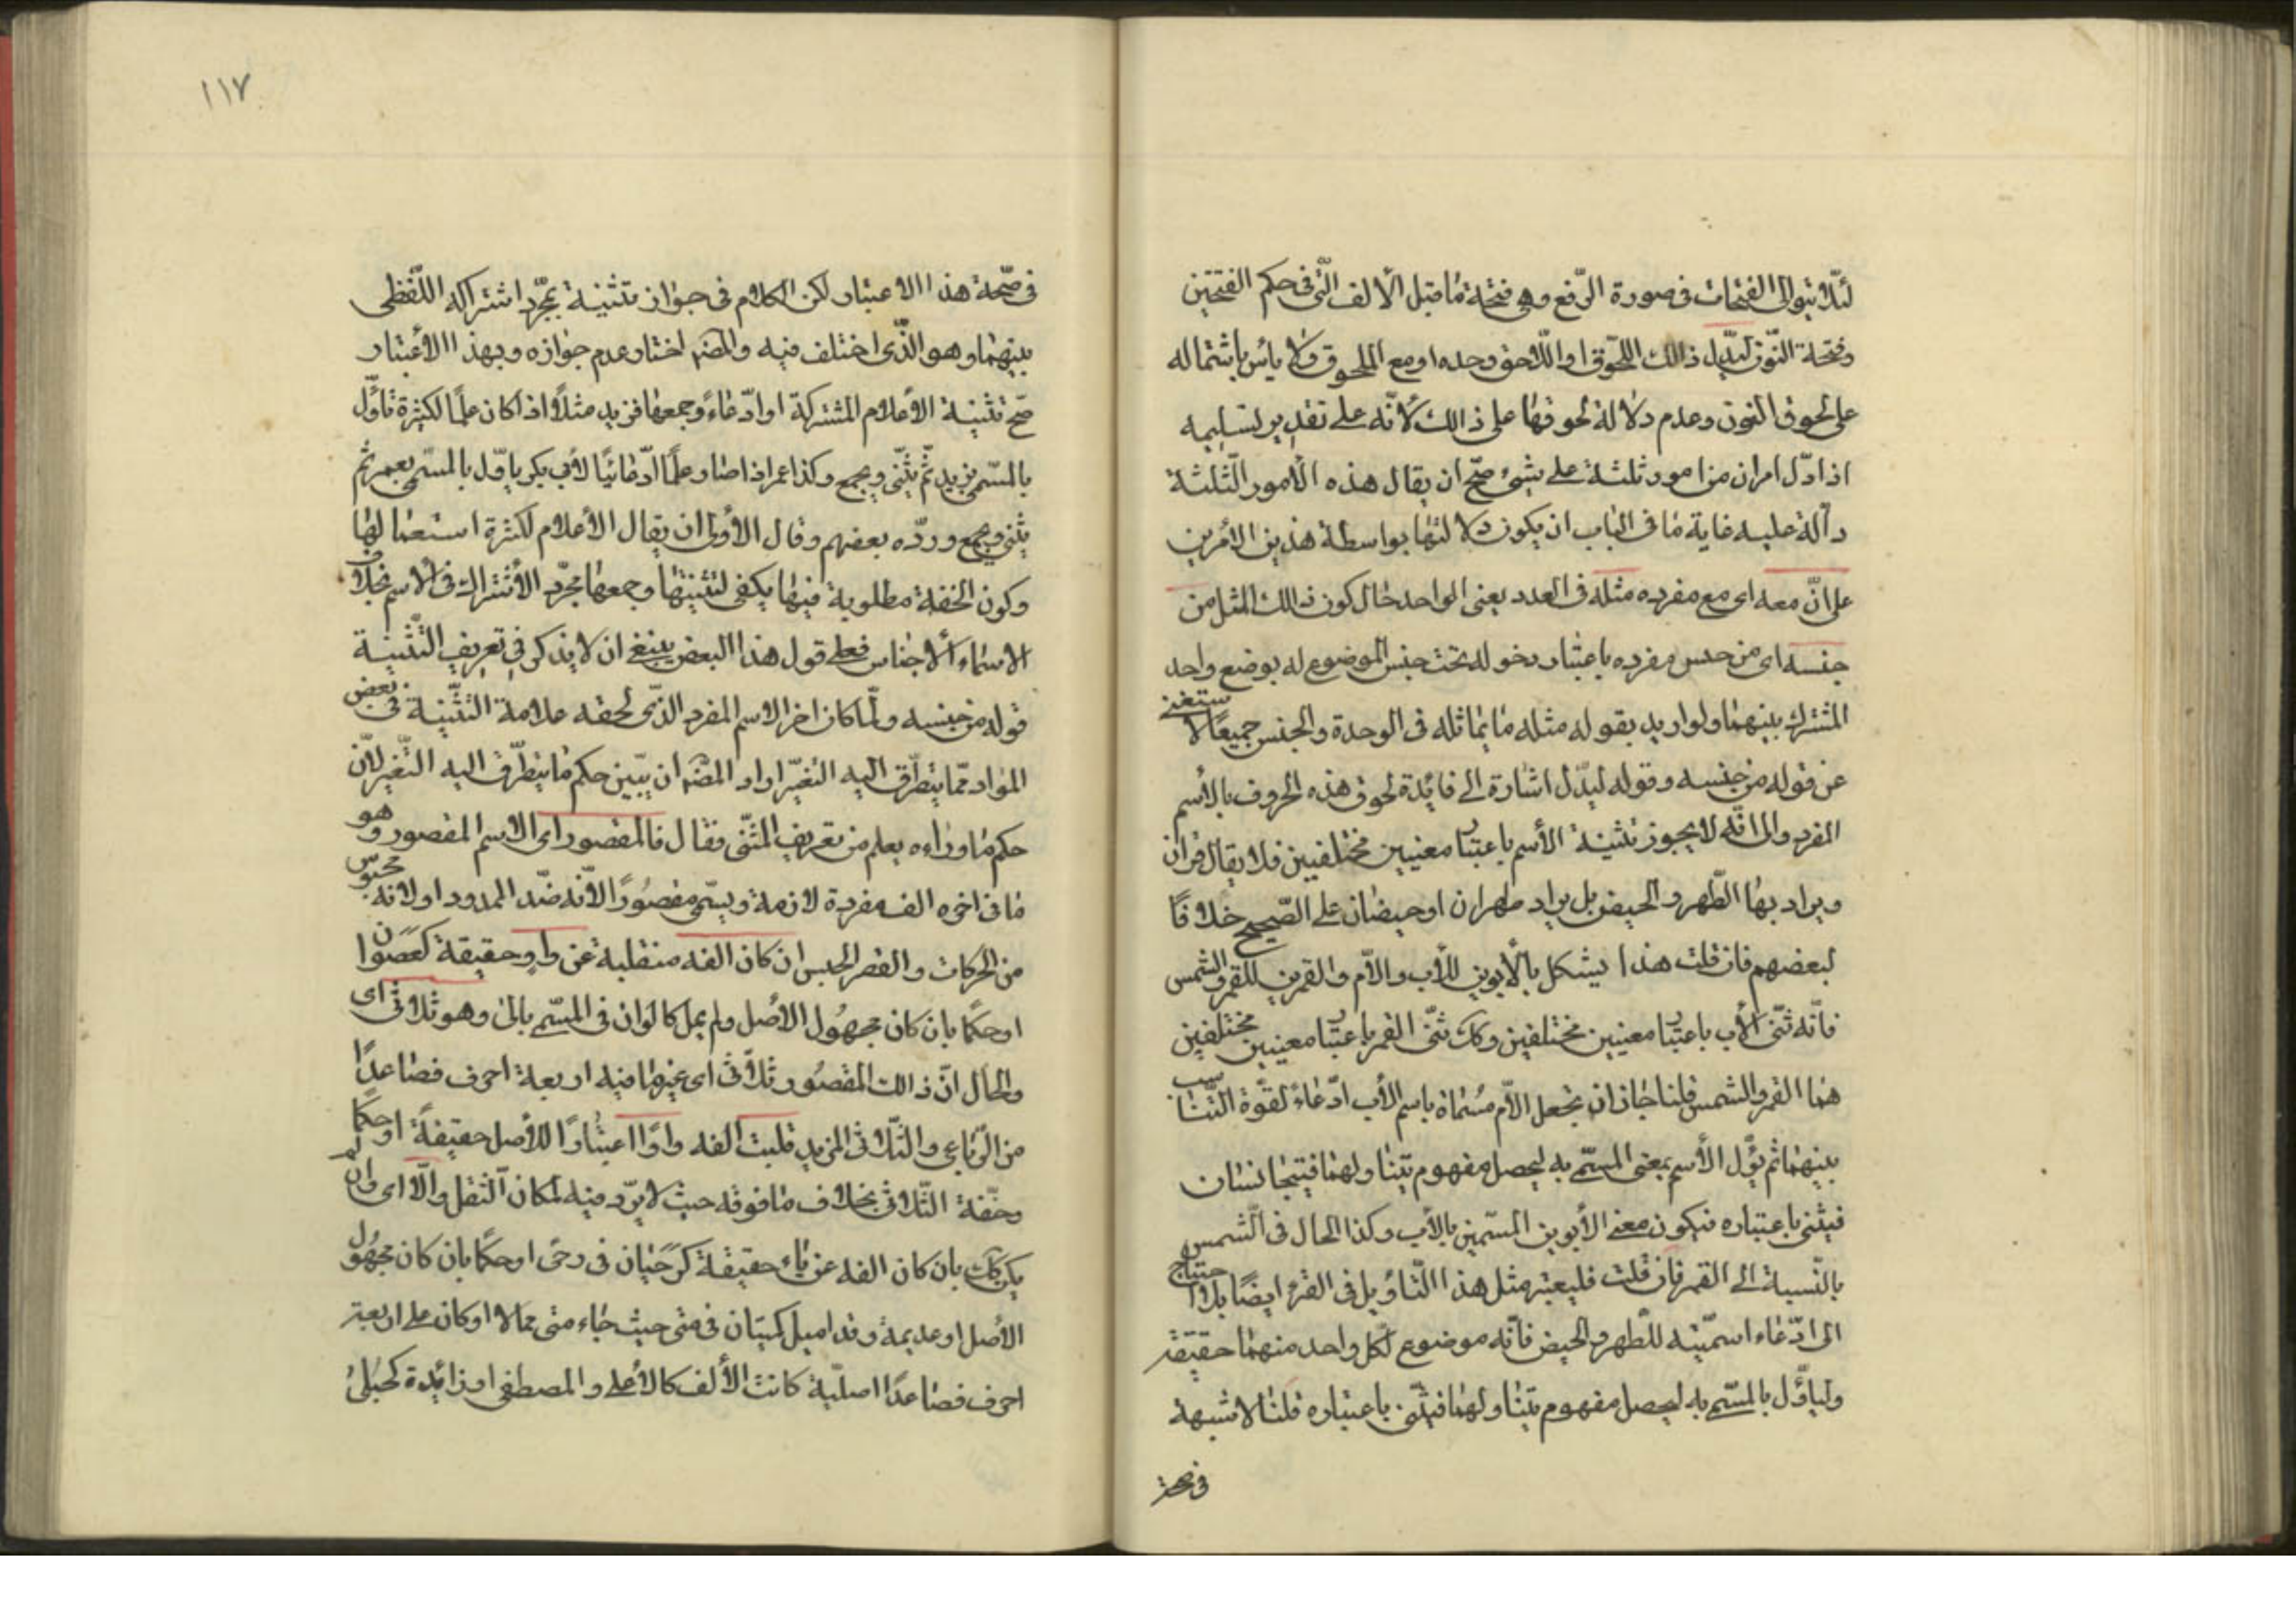 لئلّا يتوالى الفتحات فى صورة الرّفع وهى فتحة ما قبل الألف الّتى فى حكم الفتحتين
وفتحة النّون ليدّل ذالك اللّحوق او اللّاحق وحده او مع الملحوق ولا بأس باشتماله
على لحوق النون وعدم دلالة لحوقها على ذالك لأنّه على تقدير تسليمه
اذا دّل امران من امور ثلثة على شئ صحّ ان يقال هذه الأمور الثّلثة
دآلة عليه غاية ما فى الباب ان يكون دلالتها بواسطة هذين الأمرين
على انّ معه اى مع مفرده مثله فى العدد يعنى الواحد حال كون ذالك المثل من
جنسه اى من جنس مفرده باعتبار دخوله تحت جنس الموضوع له بوضع واحد
المشترك بينهما ولو اريد بقوله مثله ما يماثله فى الوحدة والجنس جميعًا لاستغنى
عن قوله من جنسه وقوله ليدّل اشارة الى فائدة لحوق هذه الحروف بالأسم
المفرد والى انّه لا يجوز تثنية الأسم باعتبار معنيين مختلفين فلا يقال قرآن
ويراد بها الطّهر والحيض بل يراد طهران او حيضان على الصّحيح خلافًا
لبعضهم فان قلت هذا يشكل بالأبوين للأب والأمّ والقمرين للقمر والشمس
فانّه ثنّى الأب باعتبار معنيين مختلفين وكك ثنّى القمر باعتبار معنيين مختلفين
هما القمر والشمس قلنا جاز ان يجعل الأمّ مسماة باسم الأب ادّعاءً لقوّة التّناسب
بينهما ثم يؤّل الأسم بمعنى المسمّى به ليحصل مفهوم يتناولهما فيتجانسان
فيثنى باعتباره فيكون معنى الأبوين المسمّين بالأب وكذا الحال فى الشّمس
بالنّسبة الى القمر فان قلت فليعتبر مثل هذا التّأويل فى القرء ايضًا بلا احتياج
الى ادّعاء اسميّته للطّهر والحيض فانّه موضوع لكل واحد منهما حقيقة
وليأوّل بالمسمّى به ليحصل مفهوم يتناولهما فيثنّى باعتباره قلنا لا شبهة
فى صحة
١١٧
فى صّحة هذا الاعتبار لكن الكلام فى جواز تثنية بمجّرد اشتراكه اللّفظى
بينهما وهو الّذى اختلف فيه والمضـ اختار عدم جوازه وبهذا الأعتبار
صّح تثنية الأعلام المشتركة او ادّعاءً وجمعها فزيد مثلًا اذا كان علمًا لكثيرة تأوّل
بالمسّمى بزيد ثّم يثنّى ويجمع وكذا عمر اذا صار علمًا ادّعائيًا لأبى بكر يأوّل بالمسّمى بعمر ثم
يثنى ويجمع وردّه بعضهم وقال الأولى ان يقال الأعلام لكثرة استعمالها
وكون الخفة مطلوبة فيها يكفى لتثنيتها وجمعها مجرّد الأشتراك فى الاسم بخلاف
الاسماء الأجناس فعلى قول هذا البعض ينبغى ان لا يذكر فى تعريف التّثنية
قوله من جنسه ولمّا كان اخر الاسم المفرد الذّى لحقه علامة التثّنية فى بعض
المواد ممّا يتطّرق اليه التغيّر اراد المضـ ان يبّين حكم ما يتطّرق اليه التّغير لانّ
حكم ما وراءه يعلم من تعريف المثنّى فقال فالمقصور اى الاسم المقصور وهو
ما فى اخره الف مفردة لازمة ويسّمى مقصورًا لأنّه ضّد الممدود او لانه محبوس
من الحركات والقصر الحبس ان كان الفه منقلبة عن واو حقيقة كعصوان
او حكمًا بان كان مجهول الأصل ولم يمل كالوان فى المسمّى بالى وهو ثلاثى اى
والحال انّ ذالك المقصور ثلاثى اى غير ما فيه اربعة احرف فصاعدًا
من الرّباعى والثّلاثى المزيد قلبت الفه واوًا اعتبارًا للأصل حقيقةً او حكمًا
وخّفة الثّلاثى بخلاف ما فوقه حيث لا يرّد فيه لمكان الثقل والّا اى وان لم
يكن كك بان كان الفه عن ياء حقيقة كرحيان فى رحى او حكمًا بان كان مجهول
الأصل او عديمة وقد اميل كمتيان فى متى حيث جاء متى ممالا او كان على اربعة
احرف فصاعدًا اصليّة كانت الألف كالأعلى والمصطفى او زائدة كحبلى